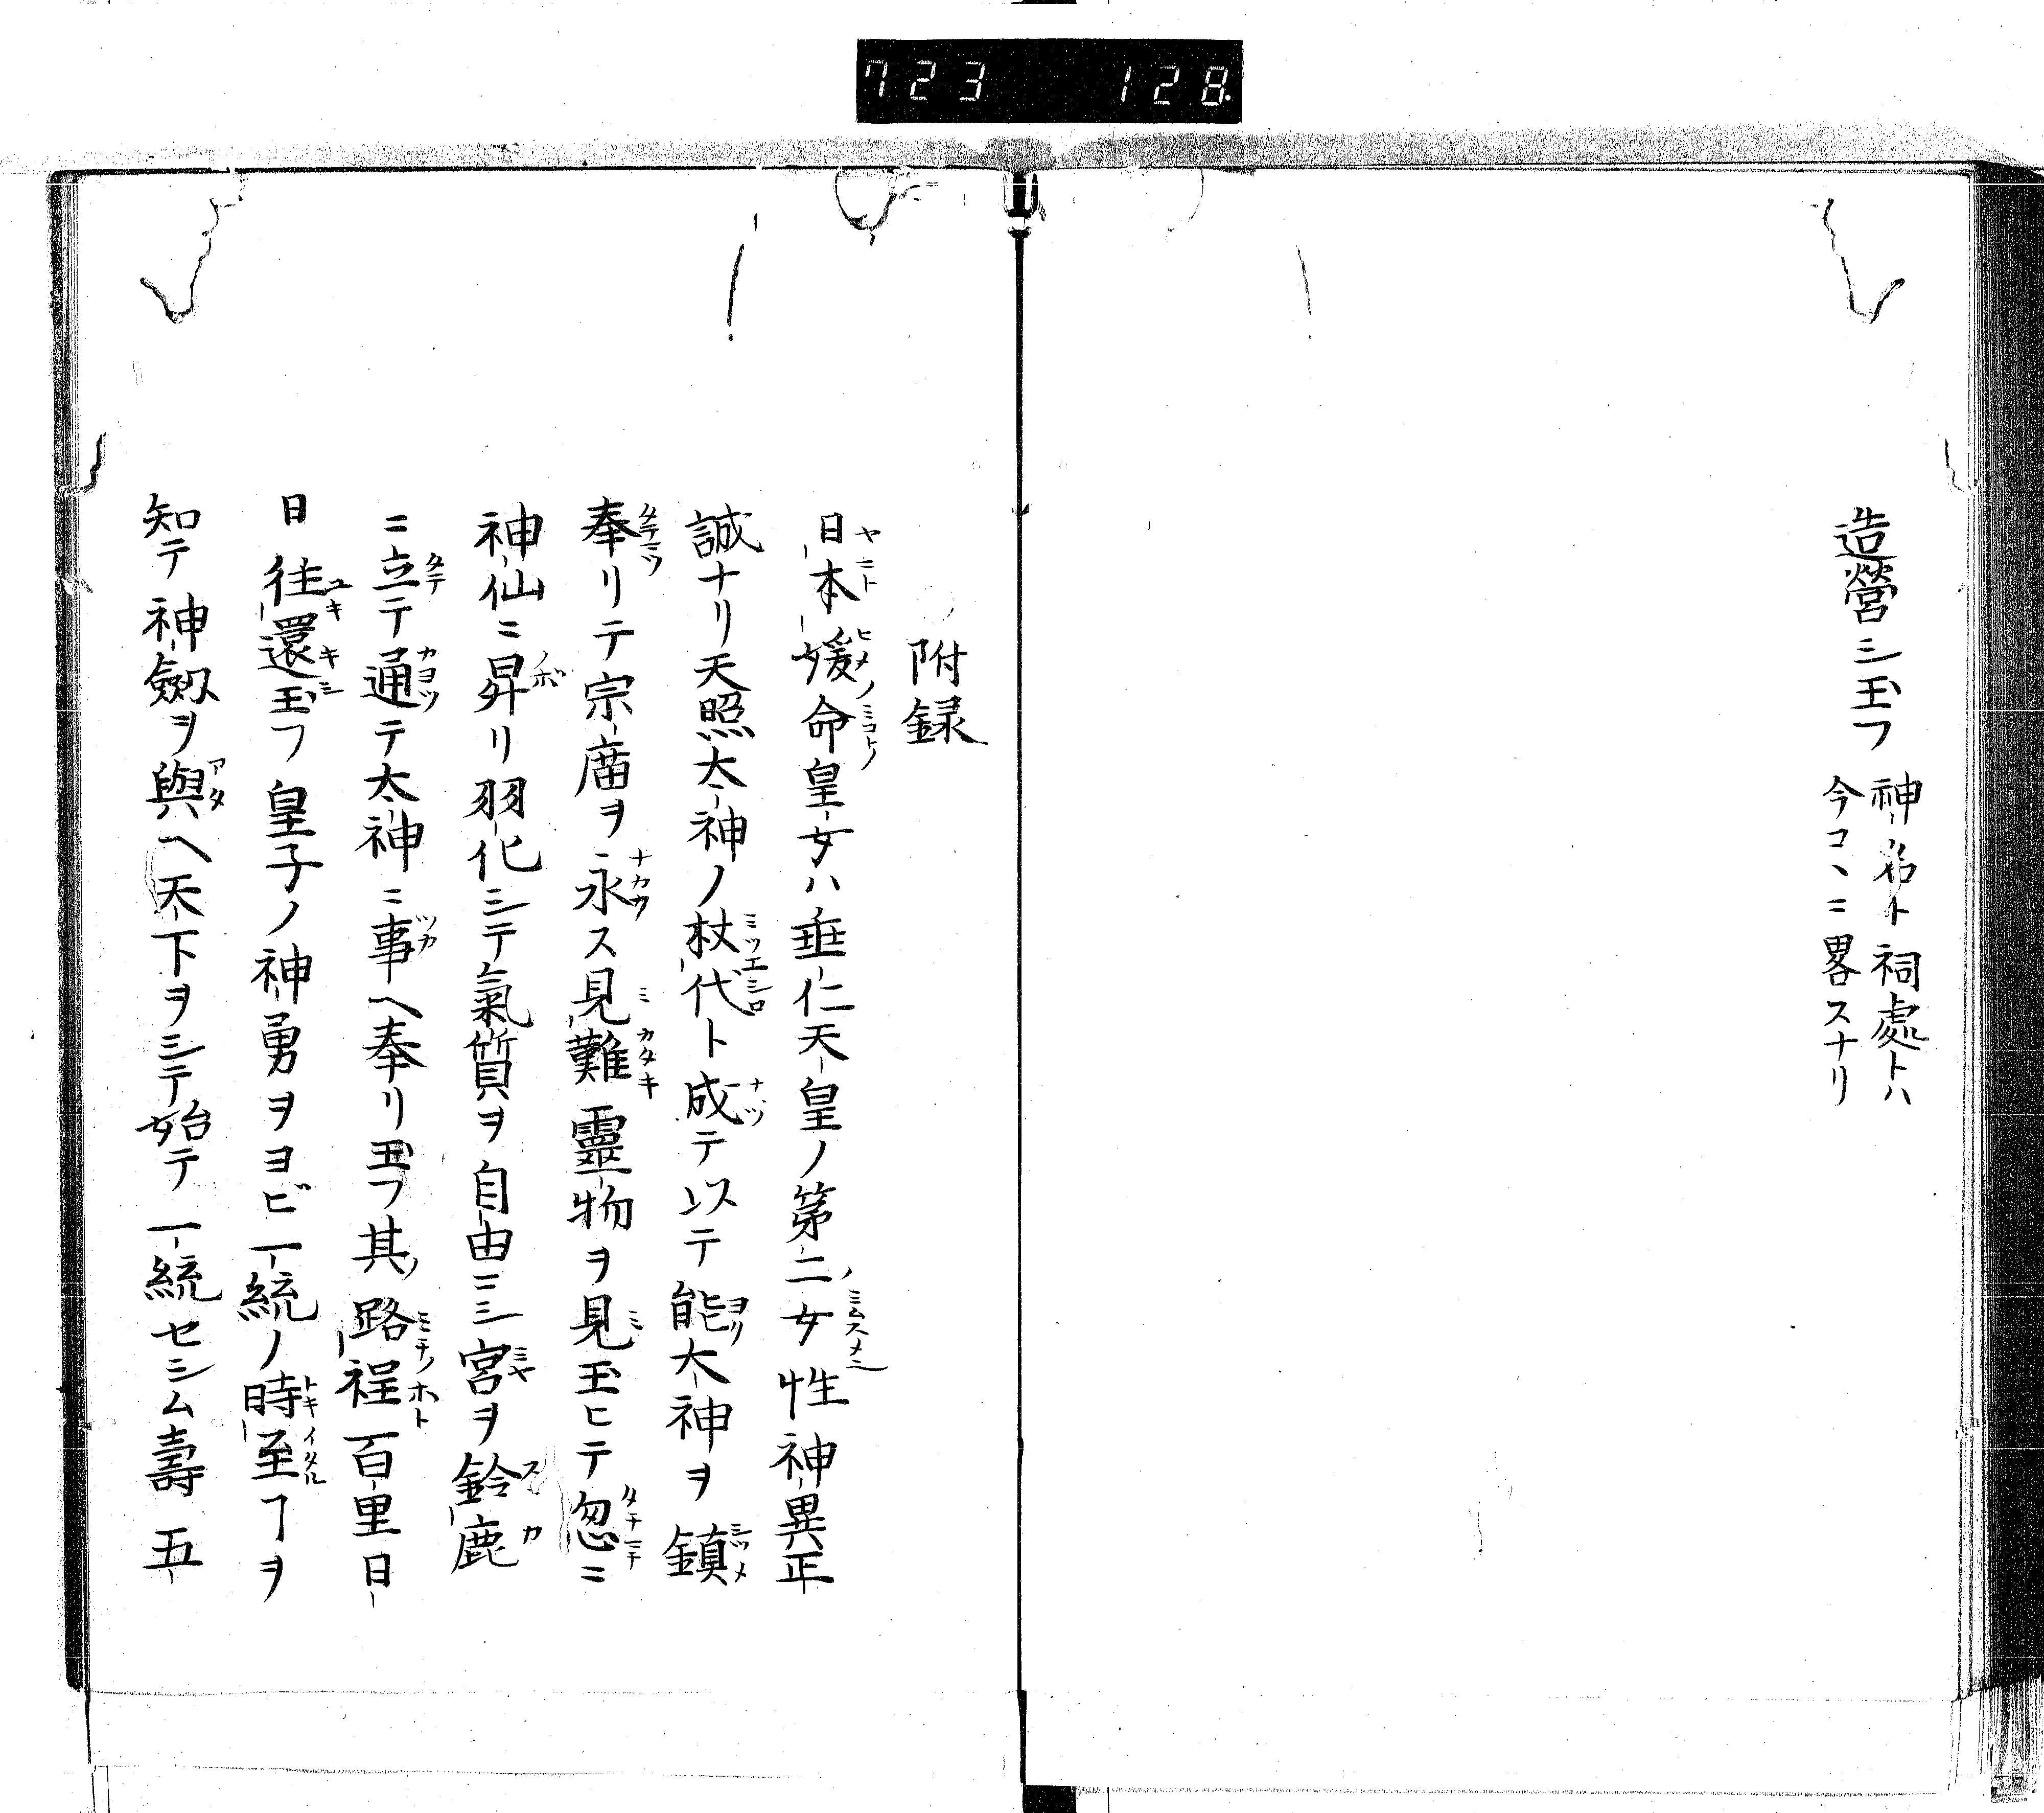 723 128
造營シ玉フ
神名ト祠處トハ
今コヽニ畧スナリ
附録
日本媛命皇女ハ垂仁天皇ノ第二女性神異正
誠ナリ天照太神ノ杖代ト成テ以テ能大神ヲ鎮
奉リテ宗廟ヲ永ス見難靈物ヲ見玉ヒテ忽ニ
神仙ニ昇リ羽化シテ氣質ヲ自由ニシ宮ヲ鈴鹿
ニ立テ通テ太神ニ事ヘ奉リ玉フ其路程百里日
日往還玉フ皇子ノ神勇ヲヨビ一統ノ時至ヿヲ
知テ神劔ヲ與ヘ天下ヲシテ始テ一統セシム壽五